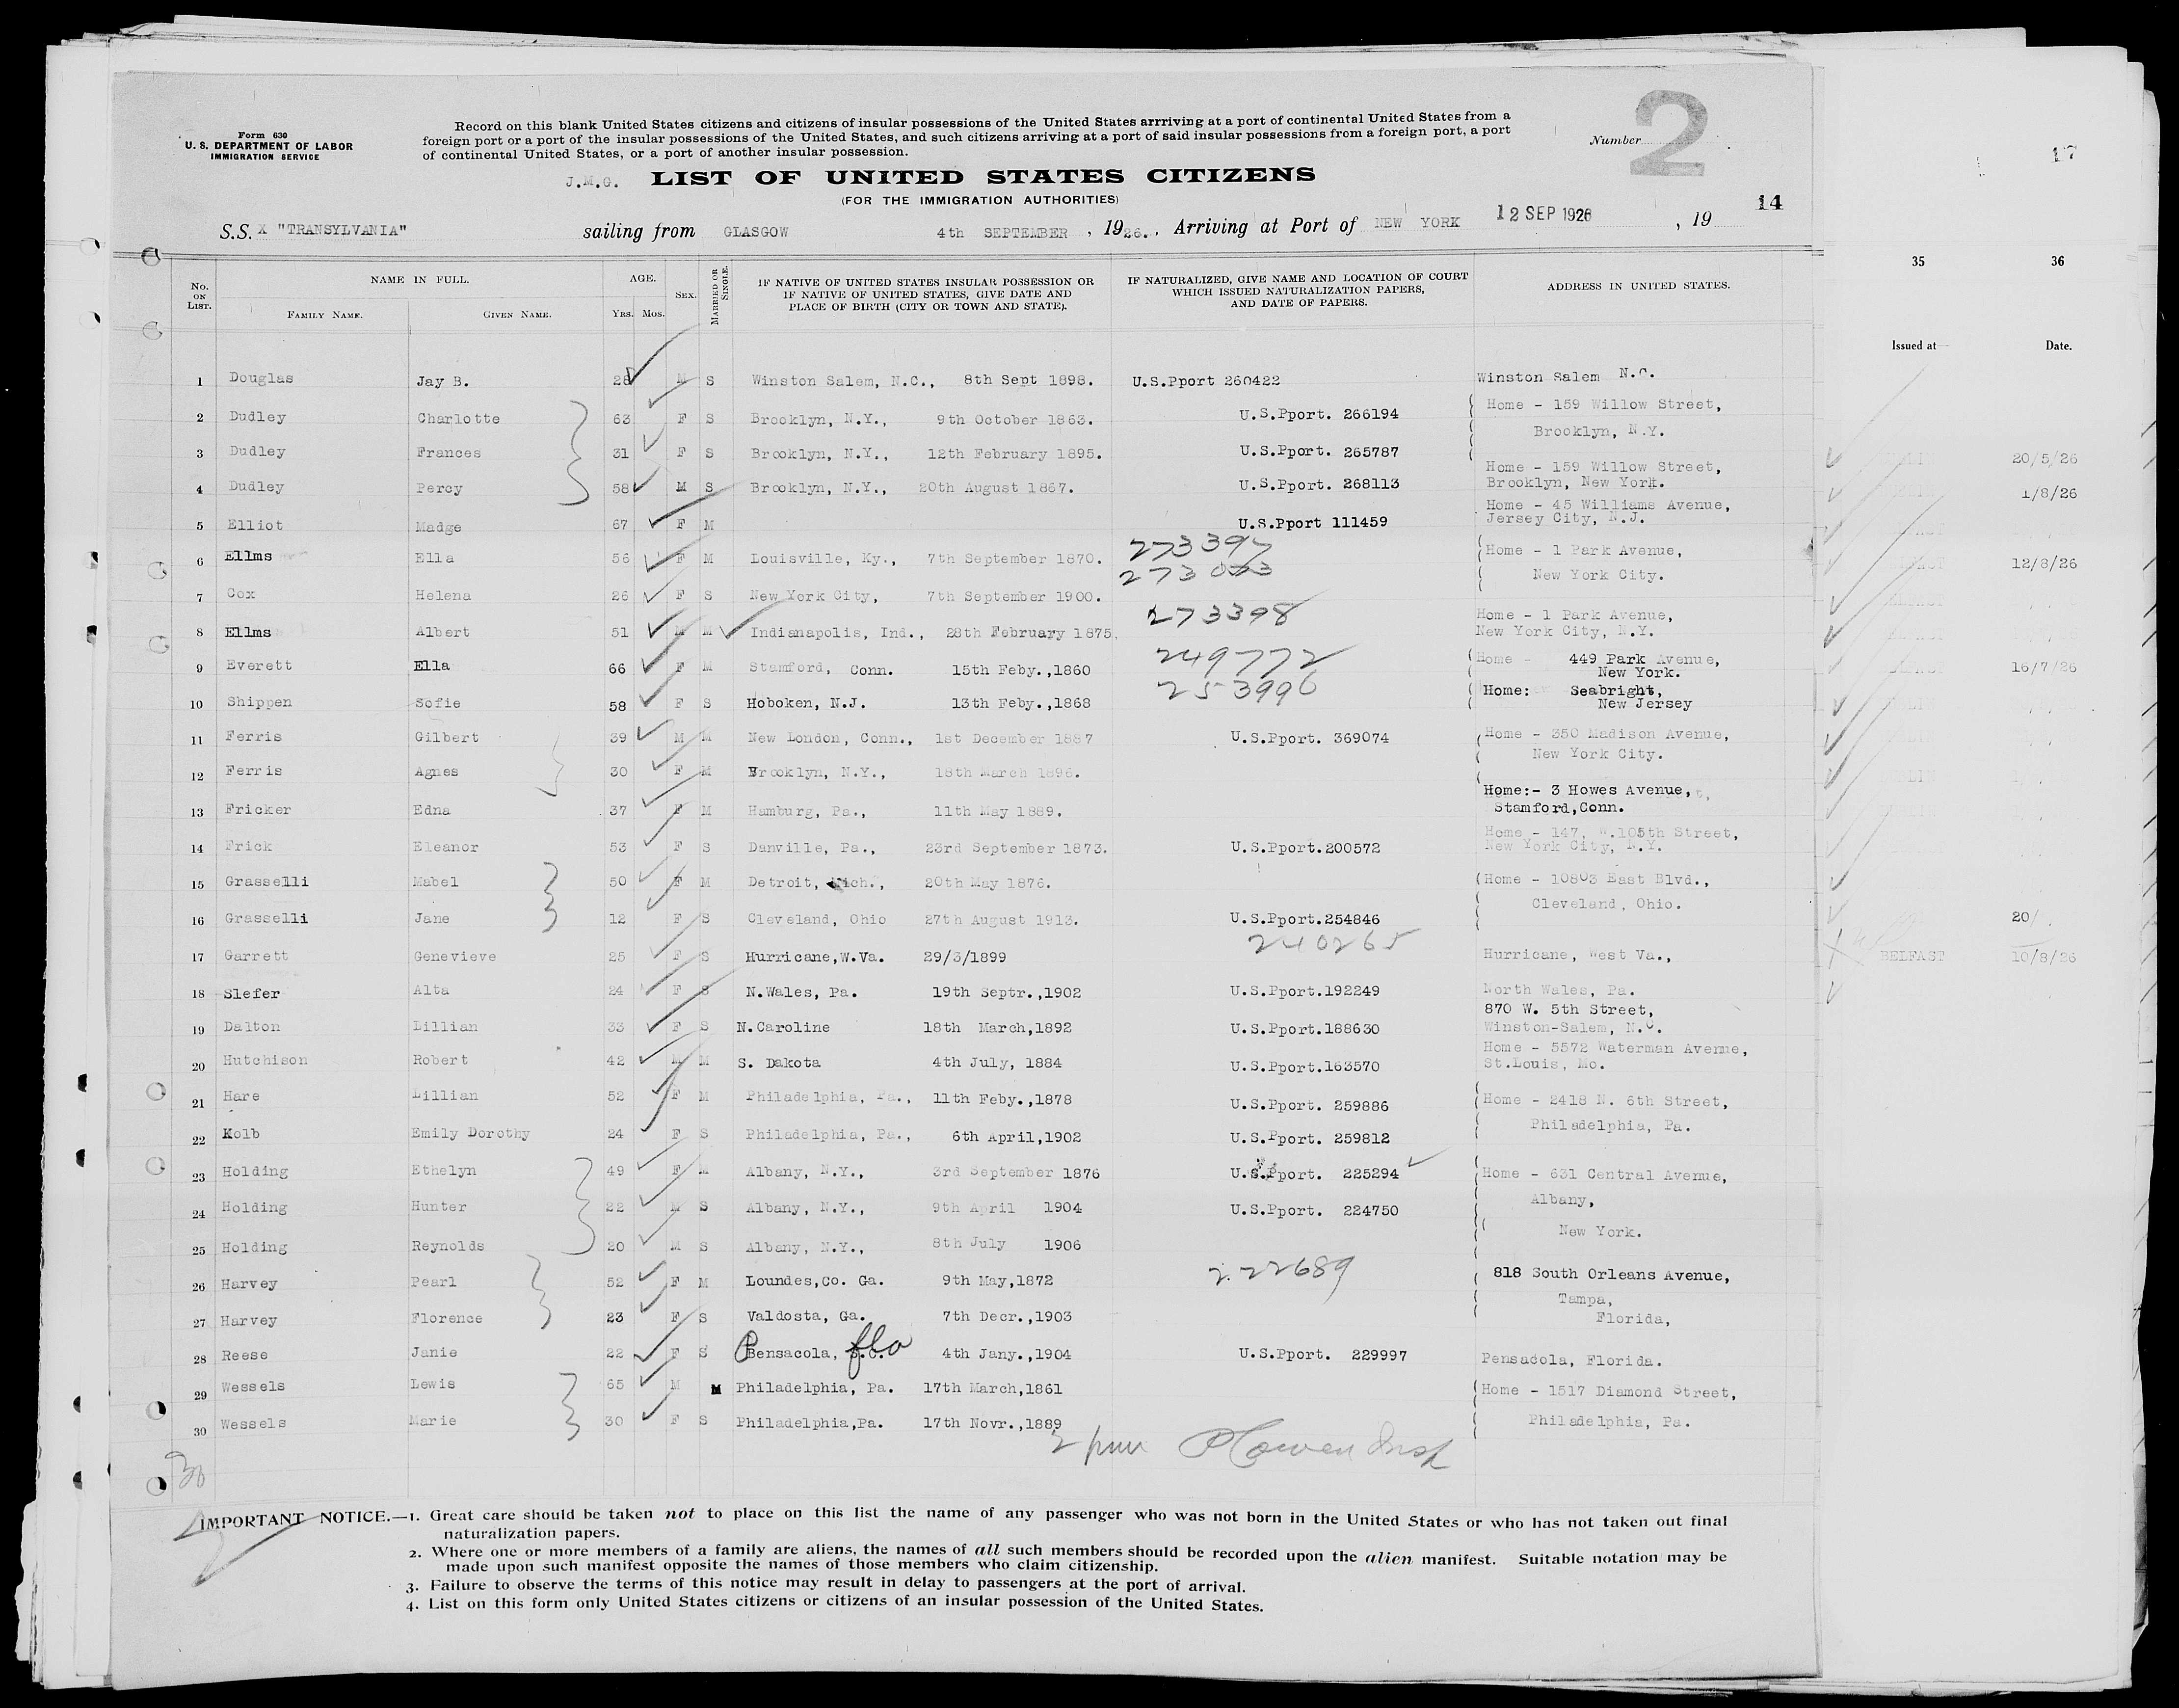 Form 630
U. S. DEPARTMENT OF LABOR
IMMIGRATION SERVICE
Record on this blank United States citizens and citizens of insular possessions of the United States arrriving at a port of continental United States from a
foreign port or a port of the insular possessions of the United States, and such citizens arriving at a port of said insular possessions from a foreign port, a port
of continental United States, or a port of another insular possession.
Number 2
17
J.M.G. LIST OF UNITED STATES CITIZENS
(FOR THE IMMIGRATION AUTHORITIES)
14
S.S. X "TRANSYLVANIA" sailing from GLASGOW 4th SEPTEMBER , 1926. , Arriving at Port of NEW YORK 12 SEP 1926 , 19
35 36
No. ON LIST. NAME IN FULL. AGE. SEX. MARRIED OR SINGLE. IF NATIVE OF UNITED STATES INSULAR POSSESSION OR IF NATIVE OF UNITED STATES, GIVE DATE AND PLACE OF BIRTH (CITY OR TOWN AND STATE). IF NATURALIZED, GIVE NAME AND LOCATION OF COURT WHICH ISSUED NATURALIZATION PAPERS, AND DATE OF PAPERS. ADDRESS IN UNITED STATES.
FAMILY NAME. GIVEN NAME. Yrs. Mos.
Issued at Date.
1 Douglas Jay B. 28 M S Winston Salem, N.C., 8th Sept 1898. U.S.Pport 260422 Winston Salem N.C.
2 Dudley Charlotte 63 F S Brooklyn, N.Y., 9th October 1863. U.S.Pport. 266194 Home - 159 Willow Street,
Brooklyn, N.Y.
3 Dudley Frances 31 F S Brooklyn, N.Y., 12th February 1895. U.S.Pport. 265787
20/5/26
4 Dudley Percy 58 M S Brooklyn, N.Y., 20th August 1867. U.S.Pport. 268113 Home - 159 Willow Street,
Brooklyn, New York.
1/8/26
5 Elliot Madge 67 F M U.S.Pport 111459 Home - 45 Williams Avenue,
Jersey City, N.J.
6 Ellms Ella 56 F M Louisville, Ky., 7th September 1870. 273397 Home - 1 Park Avenue,
273033 New York City.
12/8/26
7 Cox Helena 26 F S New York City, 7th September 1900.
8 Ellms Albert 51 M M Indianapolis, Ind., 28th February 1875. 273398 Home - 1 Park Avenue,
New York City, N.Y.
9 Everett Ella 66 F M Stamford, Conn. 15th Feby.,1860 249772 Home - 449 Park Avenue,
New York.
16/7/26
10 Shippen Sofie 58 F S Hoboken, N.J. 13th Feby.,1868 253996 Home: Seabright,
New Jersey
11 Ferris Gilbert 39 M M New London, Conn., 1st December 1887 U.S.Pport. 369074 Home - 350 Madison Avenue,
New York City.
12 Ferris Agnes 30 F M Brooklyn, N.Y., 18th March 1896.
13 Fricker Edna 37 F M Hamburg, Pa., 11th May 1889. Home:- 3 Howes Avenue,
Stamford,Conn.
14 Frick Eleanor 53 F S Danville, Pa., 23rd September 1873. U.S.Pport.200572 Home - 147, W.105th Street,
New York City, N.Y.
15 Grasselli Mabel 50 F M Detroit, Mich., 20th May 1876. Home - 10803 East Blvd.,
Cleveland, Ohio.
16 Grasselli Jane 12 F S Cleveland, Ohio 27th August 1913. U.S.Pport.254846
20/
17 Garrett Genevieve 25 F S Hurricane,W.Va. 29/3/1899 240265 Hurricane, West Va.,
BELFAST 10/8/26
18 Slefer Alta 24 F S N.Wales, Pa. 19th Septr.,1902 U.S.Pport.192249 North Wales, Pa.
19 Dalton Lillian 33 F S N.Caroline 18th March,1892 U.S.Pport.188630 870 W. 5th Street,
Winston-Salem, N.C.
20 Hutchison Robert 42 M M S. Dakota 4th July, 1884 U.S.Pport.163570 Home - 5572 Waterman Avenue,
St.Louis, Mo.
21 Hare Lillian 52 F M Philadelphia, Pa., 11th Feby.,1878 U.S.Pport. 259886 Home - 2418 N. 6th Street,
Philadelphia, Pa.
22 Kolb Emily Dorothy 24 F S Philadelphia, Pa., 6th April,1902 U.S.Pport. 259812
23 Holding Ethelyn 49 F M Albany, N.Y., 3rd September 1876 U.S.Pport. 225294 Home - 631 Central Avenue,
Albany,
24 Holding Hunter 22 M S Albany, N.Y., 9th April 1904 U.S.Pport. 224750
New York.
25 Holding Reynolds 20 M S Albany, N.Y., 8th July 1906
26 Harvey Pearl 52 F M Loundes,Co. Ga. 9th May,1872 222689 818 South Orleans Avenue,
Tampa,
27 Harvey Florence 23 F S Valdosta, Ga. 7th Decr.,1903 Florida,
28 Reese Janie 22 F S Pensacola, fla 4th Jany.,1904 U.S.Pport. 229997 Pensacola, Florida.
29 Wessels Lewis 65 M M Philadelphia, Pa. 17th March,1861 Home - 1517 Diamond Street,
30 Wessels Marie 30 F S Philadelphia,Pa. 17th Novr.,1889 Philadelphia, Pa.
30
IMPORTANT NOTICE.—1. Great care should be taken not to place on this list the name of any passenger who was not born in the United States or who has not taken out final
naturalization papers.
2. Where one or more members of a family are aliens, the names of all such members should be recorded upon the alien manifest. Suitable notation may be
made upon such manifest opposite the names of those members who claim citizenship.
3. Failure to observe the terms of this notice may result in delay to passengers at the port of arrival.
4. List on this form only United States citizens or citizens of an insular possession of the United States.